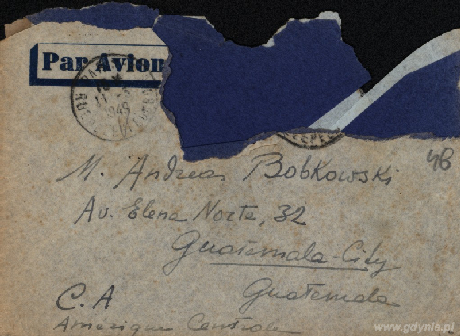 Par Avion
48
M. Andreas Bobkowski
Av. Elena Norte, 32
Guatemala-City
Guatemala
C.A
Amerique Centrale
www.gdynia.pl